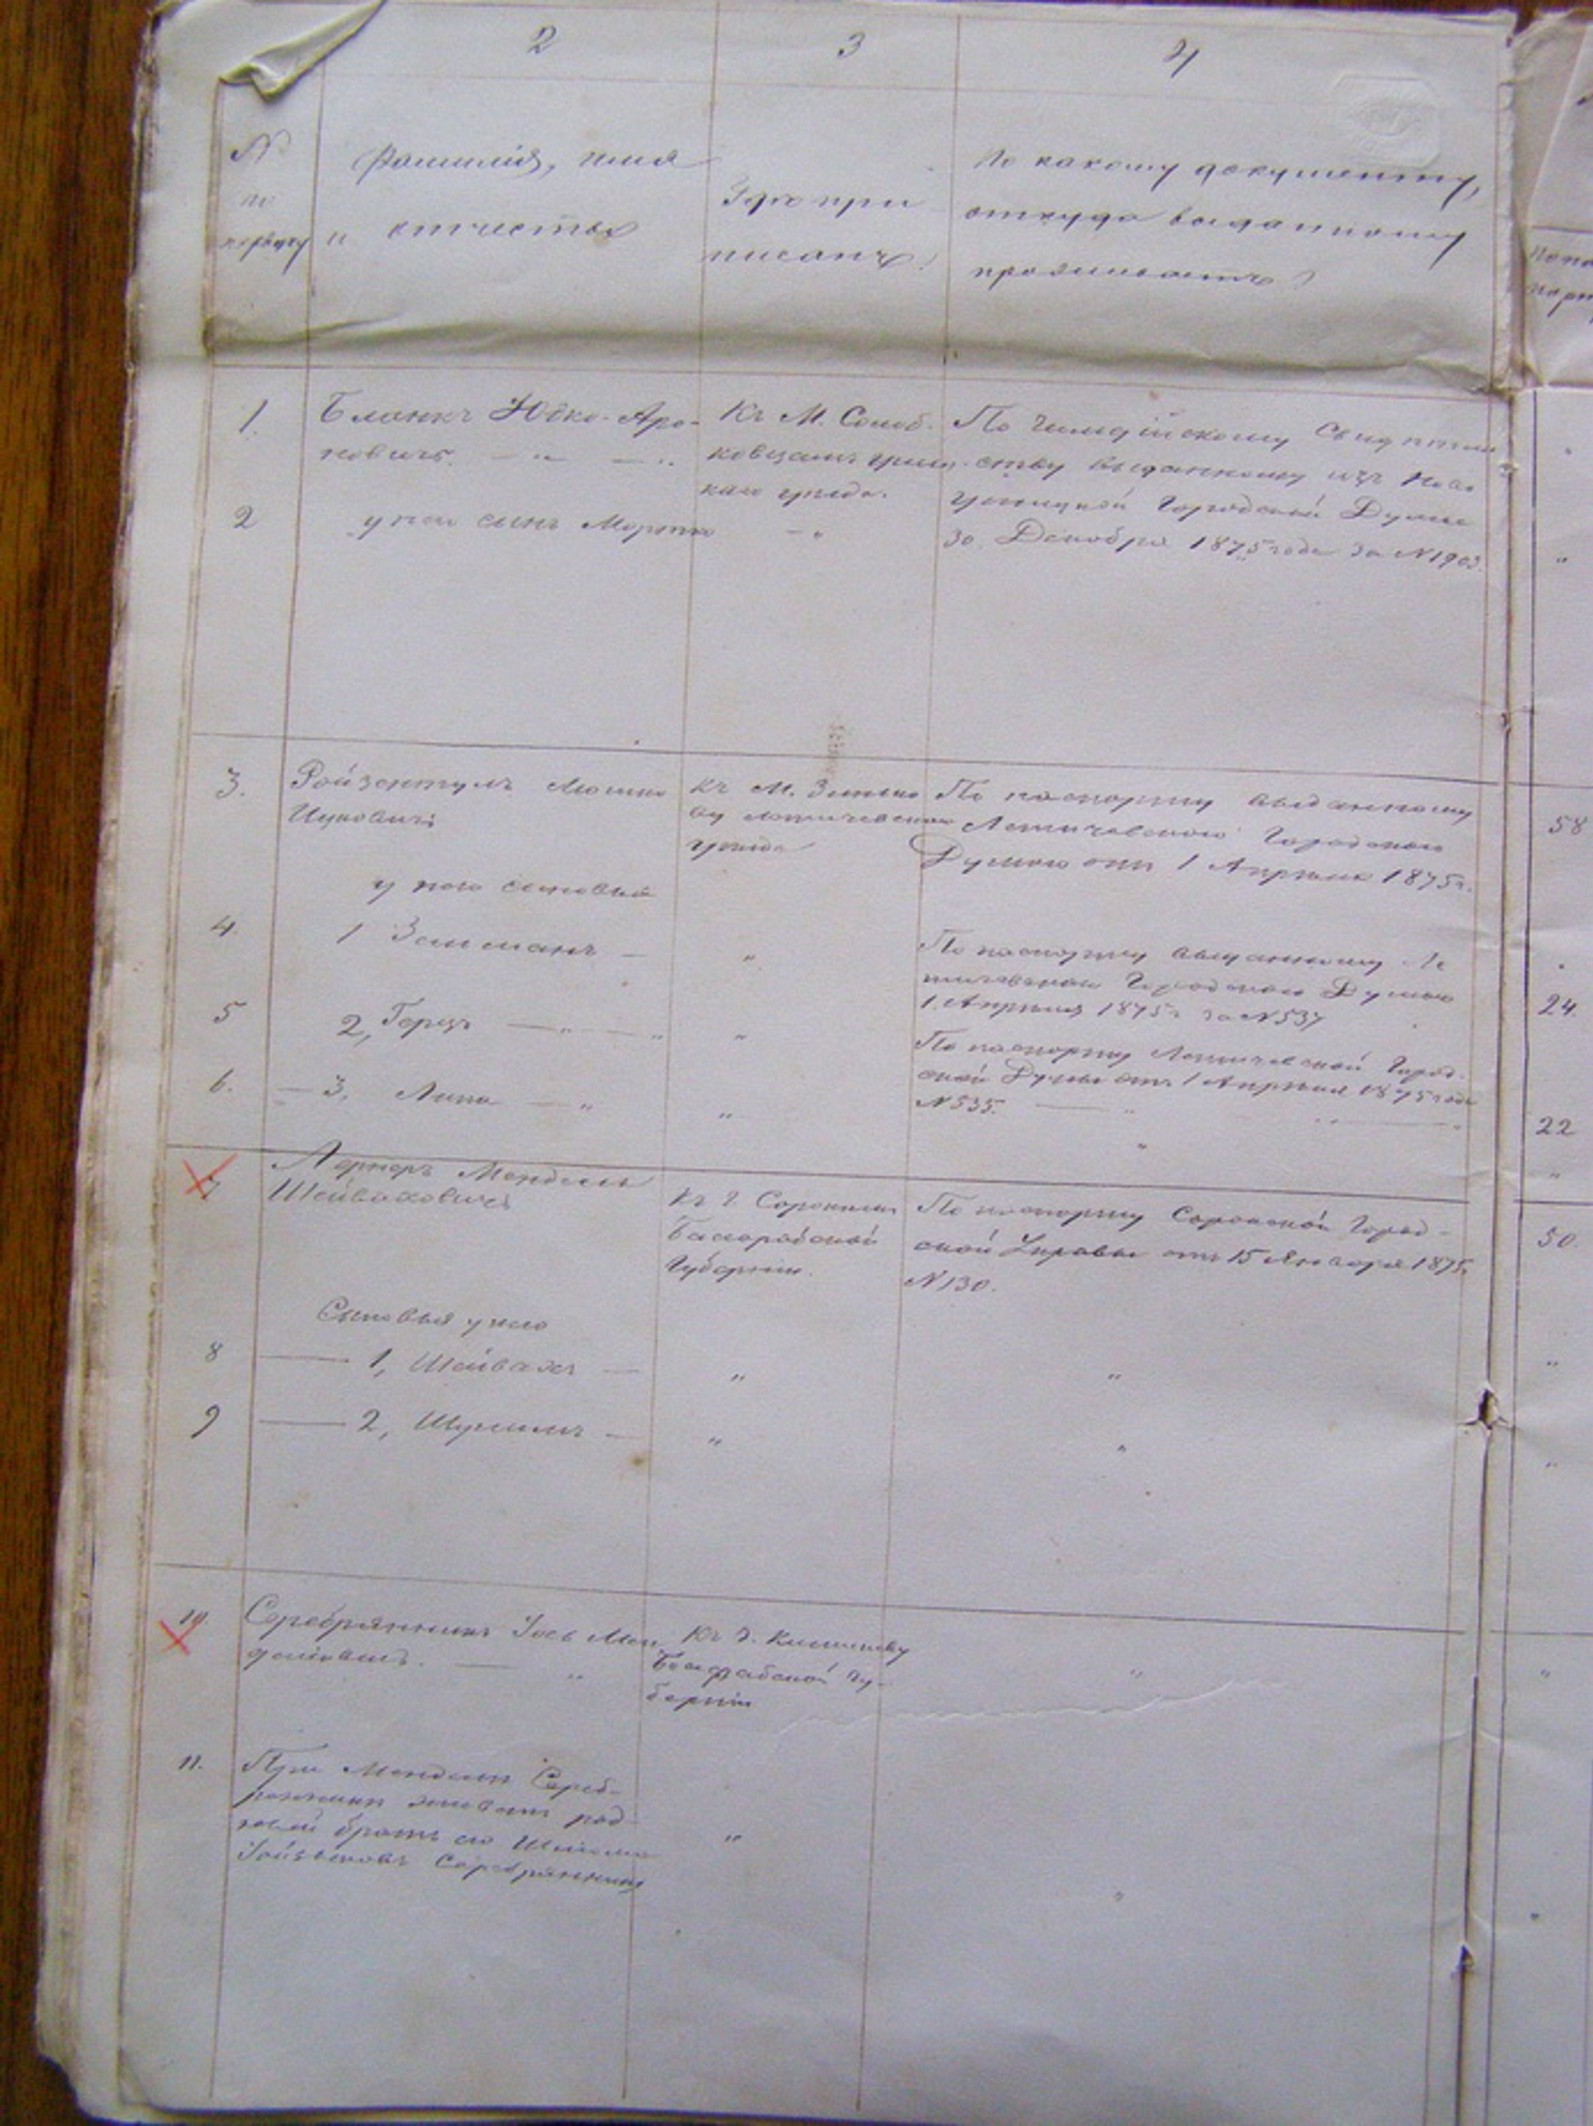 2 3 4
№ по порядку
Фамилія, имя
и отчество
Гдѣ при
писанъ?
По какому документу,
откуда выданному
проживаетъ?
1. Бланкъ Юдко-Аро-
новичъ. — " — "
Къ М. Солоб-
ковцамъ ушиц-
каго уѣзда.
По Свидѣтель
ству выданному изъ Ново
ушицкой Городской Думы
30. Декабря 1875 года за № 1903.
2 у него сынъ Мортко
— "
3. Ройзентулъ Мошко
Ицковичъ
Къ М. Зинько
ву Летичевскаго
уѣзда
По паспорту выданному
Летичевскою Городскою
Думою отъ 1 Апрѣля 1875 г.
58
у него сыновья
4. 1 Залманъ —
"
По паспорту выданному Ле
тичевскою Городскою Думою
1. Апрѣля 1875 г за № 537
24
5 2, Герцъ — " — "
"
По паспорту Летичевской Город-
ской Думы отъ 1 Апрѣля 1875 года
№ 535. — " " — "
22
6. — 3, Липа — "
" "
"
7 Лернеръ Мендель
Шейваховичъ
Къ г. Сорокамъ
Бесарабской
Губерніи.
По паспорту Сорокской Город-
ской Управы отъ 15 Января 1875,
№ 130.
50.
Сыновья у него
8 — 1, Шейвахъ —
" " "
9 — 2, Шулимъ —
" " "
10. Серебрянникъ Іосъ Мен
делевичъ. — "
Къ г. Кишиневу
Бесарабской Гу-
берніи
" "
11. При Мендель Сереб-
рянникъ живетъ род-
ной братъ его
Серебрянникъ
" "